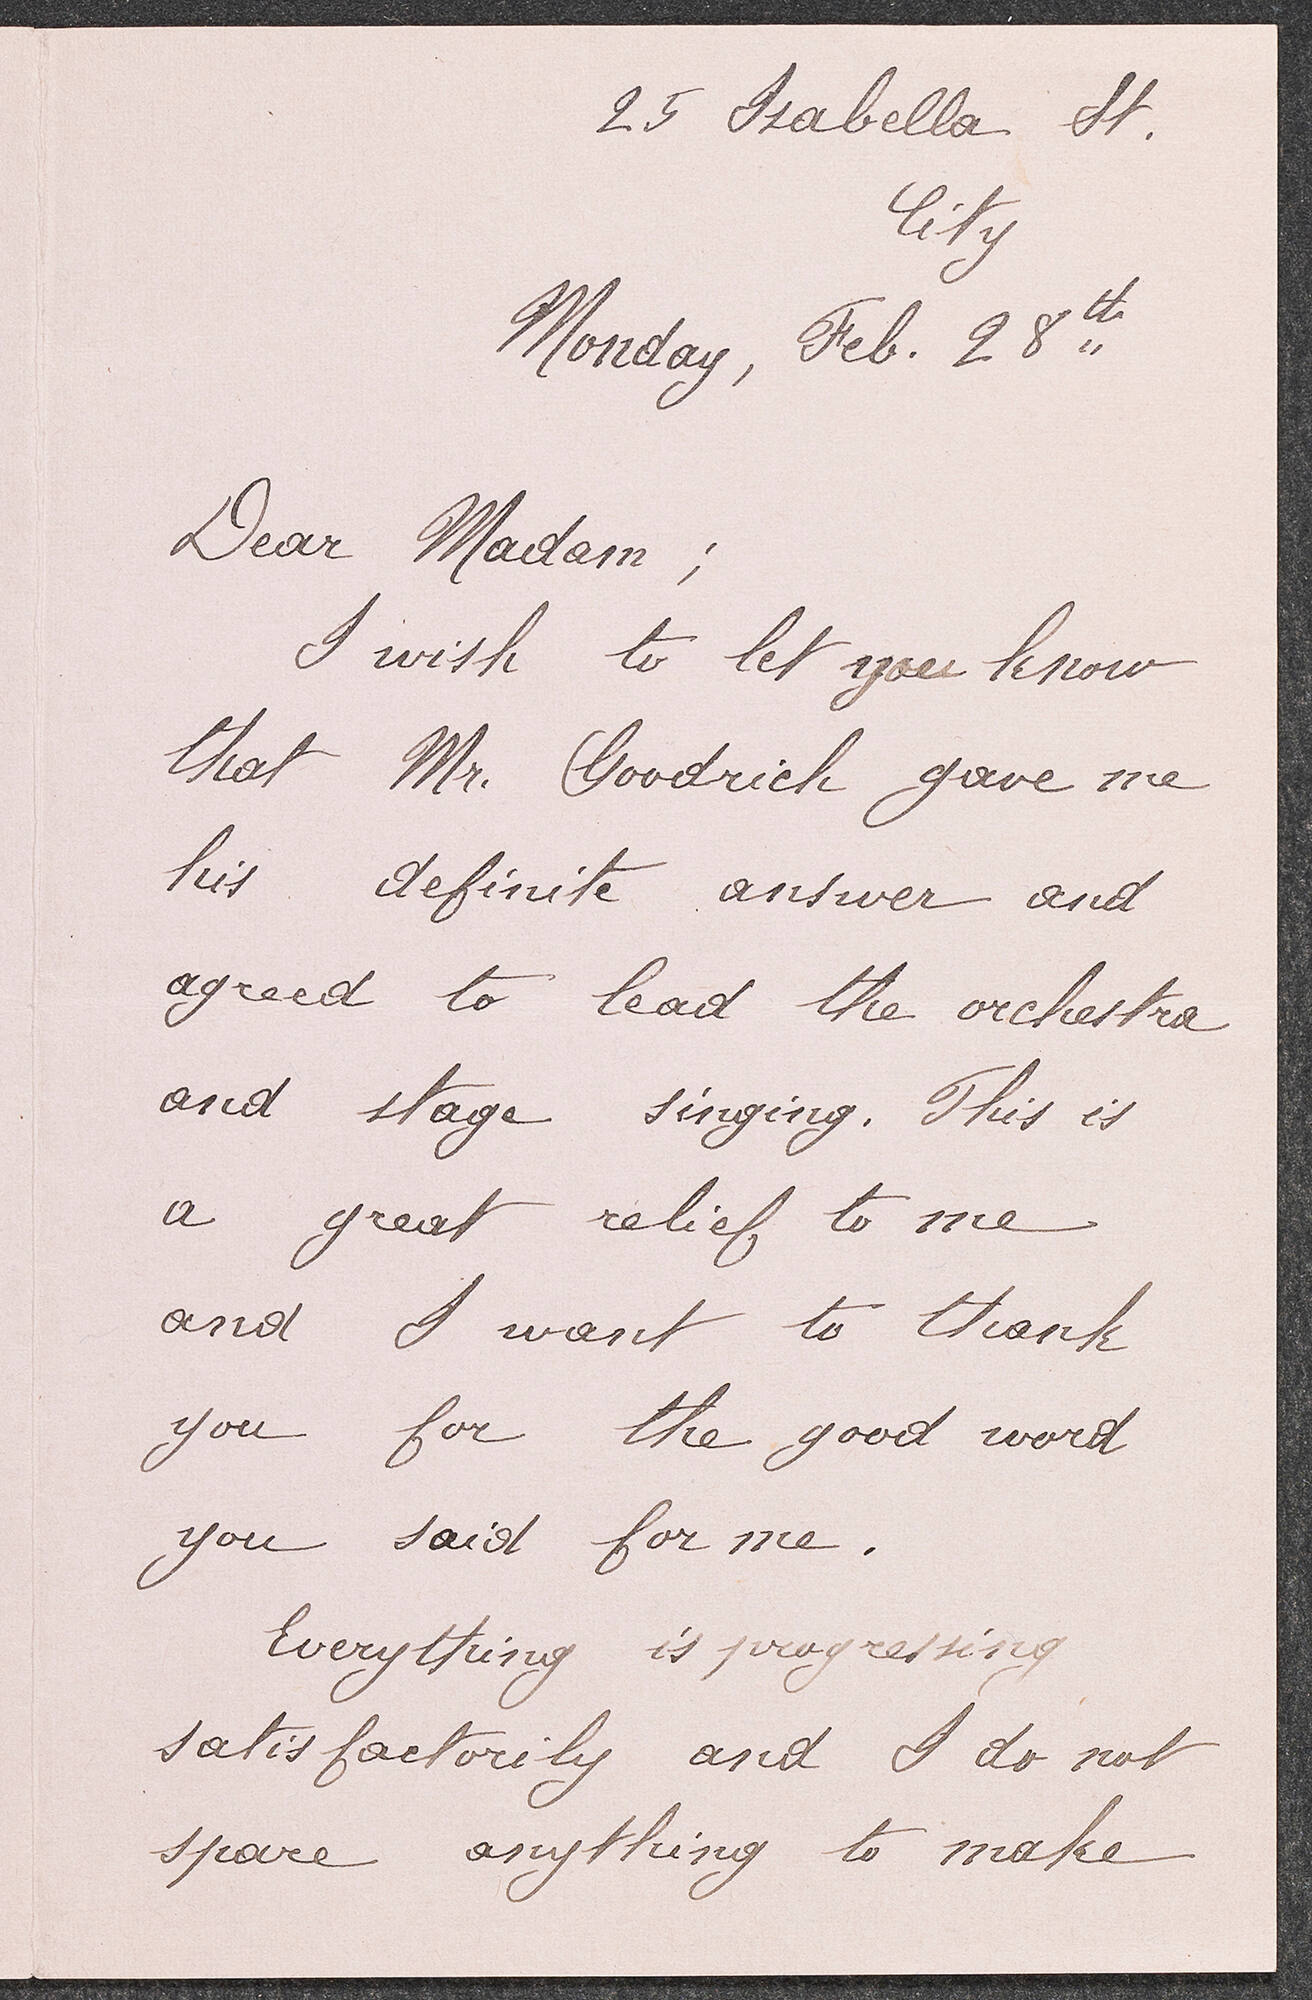 25 Isabella St.
City
Monday, Feb. 28th
Dear Madam ;
I wish to let you know
that Mr. Goodrich gave me
his definite answer and
agreed to lead the orchestra
and stage singing. This is
a great relief to me
and I want to thank
you for the good word
you said for me.
Everything is progressing
satisfactorily and I do not
spare anything to make